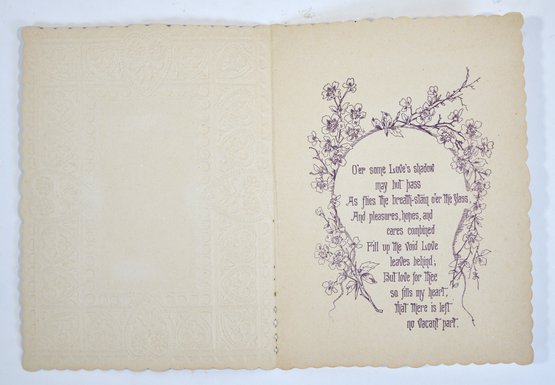 O'er some Love's shadow
may but pass
As flies the breath-stain o'er the glass,
And pleasures, hopes, and
cares combined
Fill up the void Love
leaves behind;
But love for thee
so fills my heart,
That there is left
no vacant part.